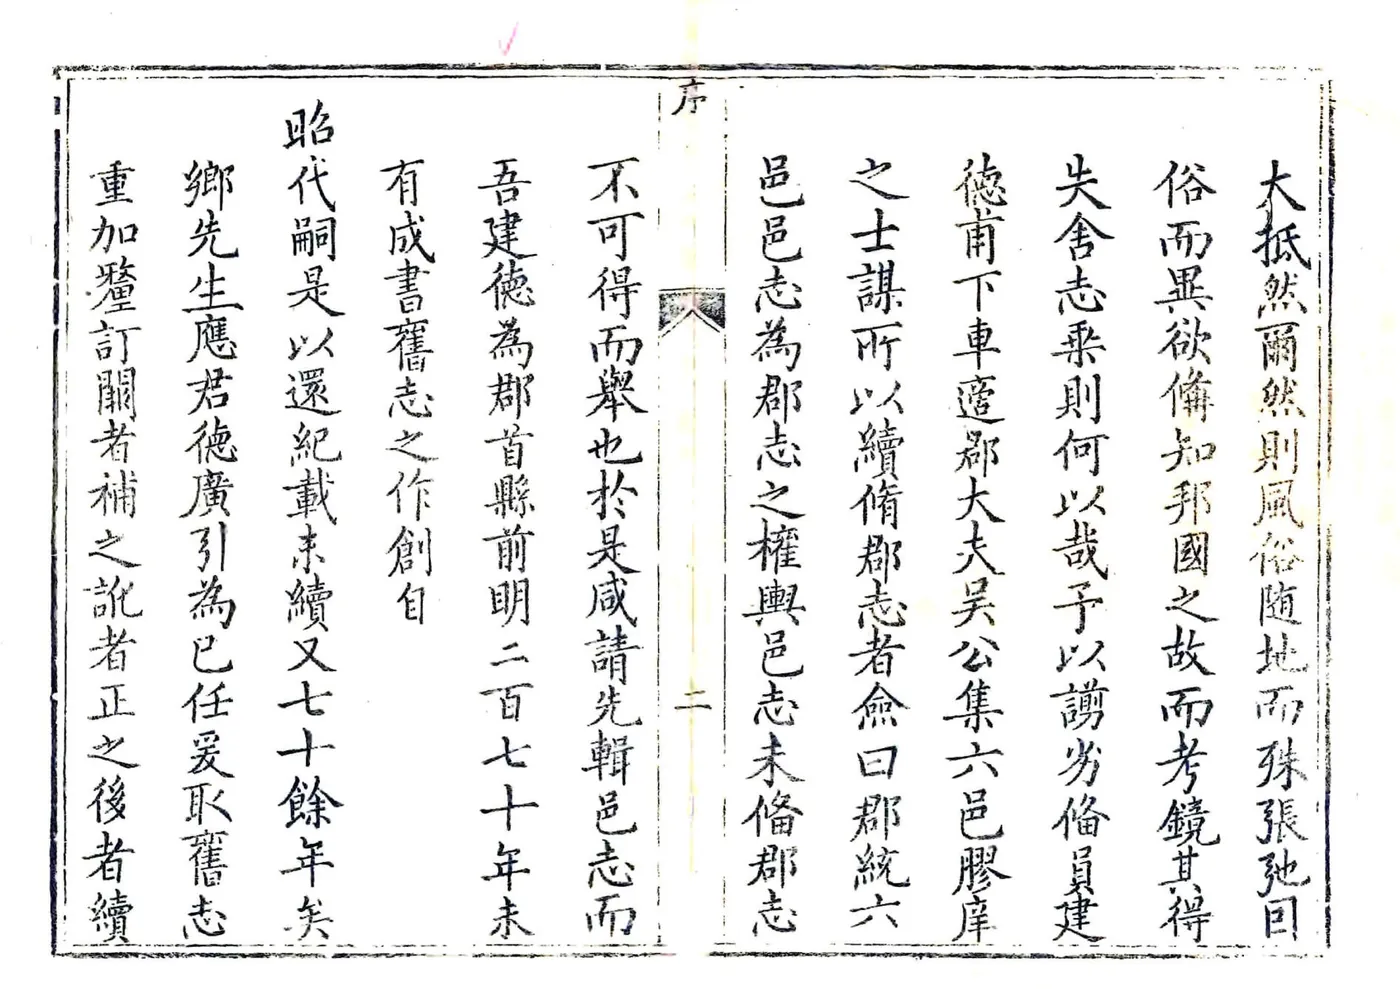 大抵然爾然則風俗随地而殊張弛因
俗而異欲俻知邦國之故而考鏡其得
失舍志乘則何以哉予以謭劣俻員建
德甫下車適郡大夫吴公集六邑膠庠
之士謀所以續脩郡志者僉曰郡統六
邑邑志為郡志之權輿邑志未俻郡志
序
二
不可得而舉也於是咸請先輯邑志而
吾建德為郡首縣前明二百七十年未
有成書舊志之作創自
昭代嗣是以還紀載未續又七十餘年矣
鄉先生應君德廣引為已任爰取舊志
重加釐訂闕者補之訛者正之後者續